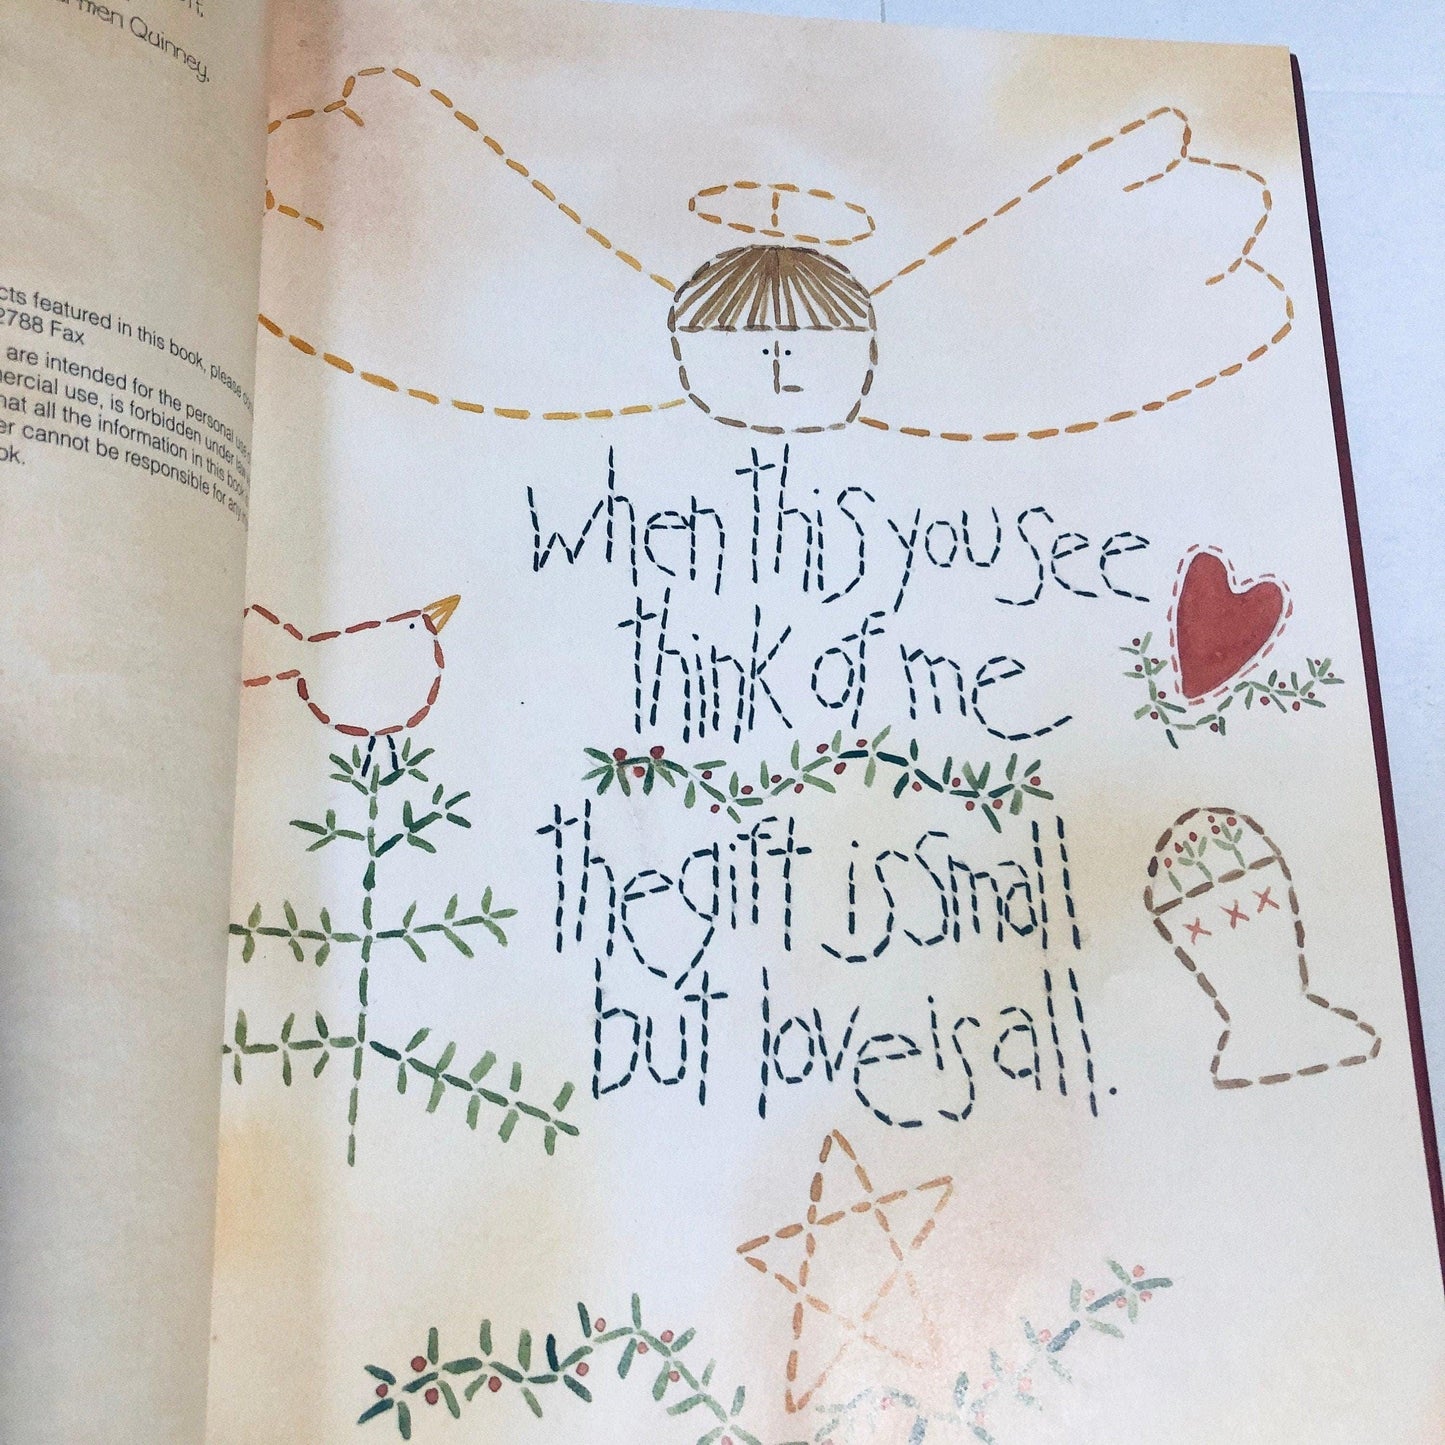 Quinney.
cts featured in this book, please
2788 Fax
are intended for the personal use
ercial use, is forbidden under law
hat all the information in this book
er cannot be responsible for any
ok.
when this you see
think of me
the gift is small
but love is all.